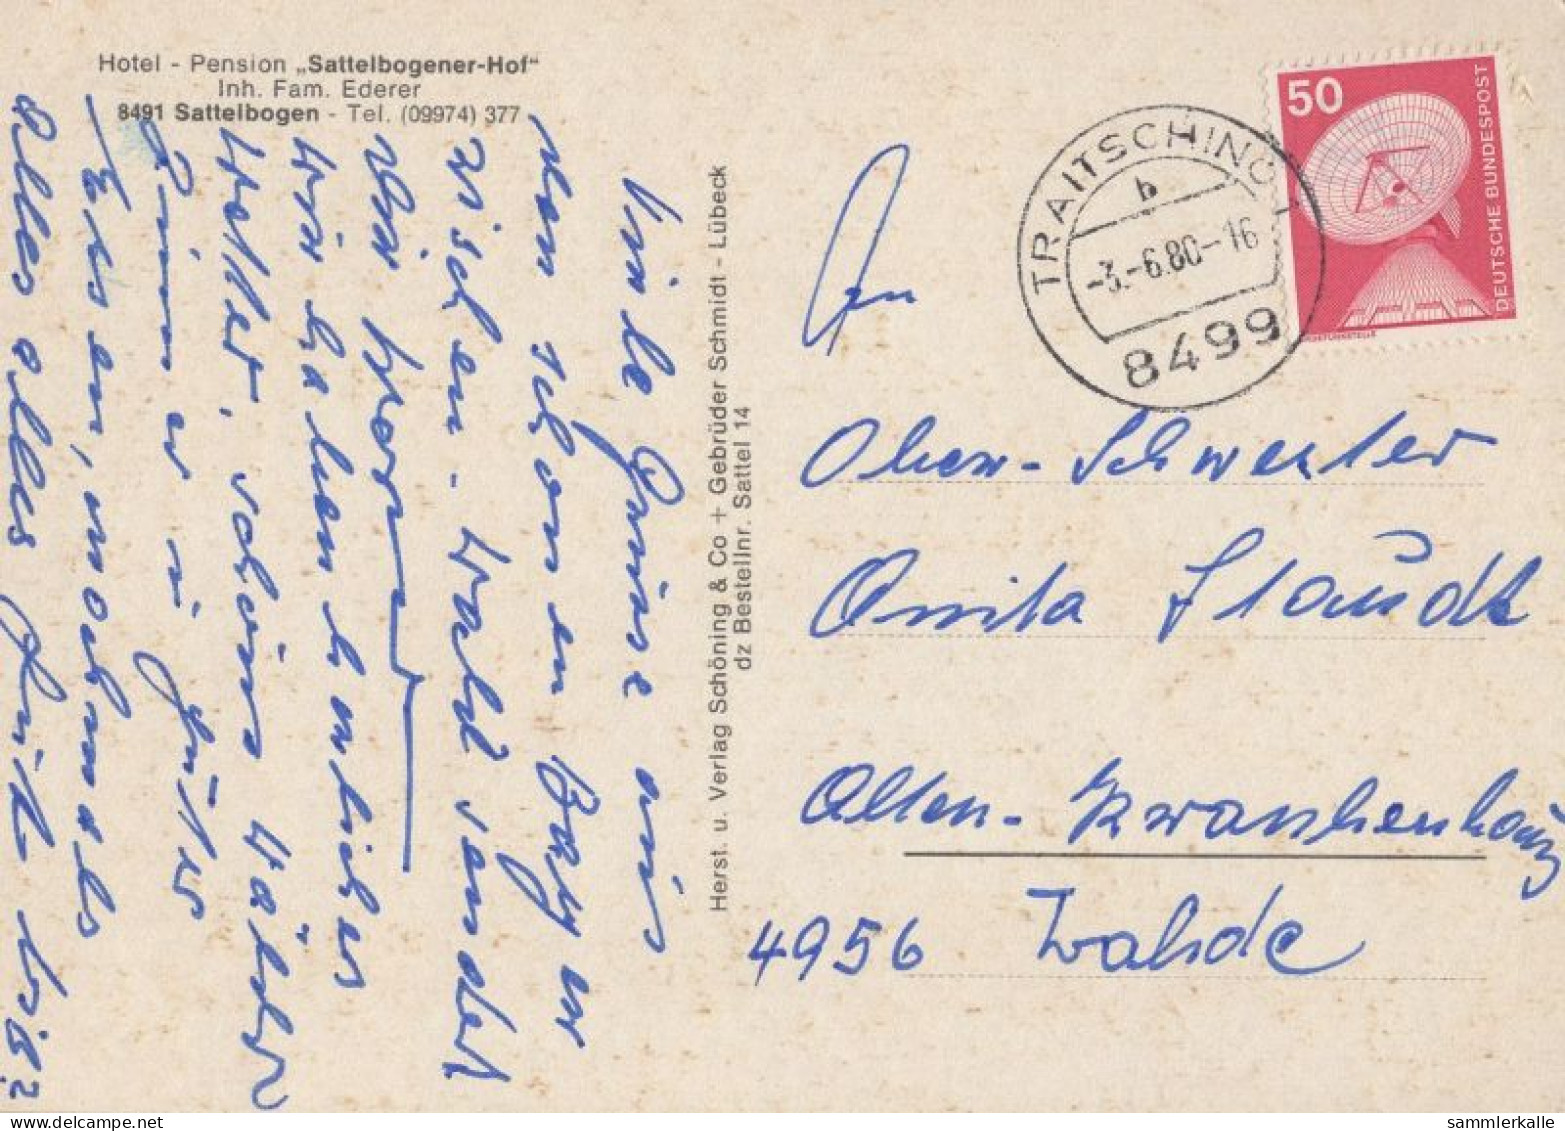 Hotel - Pension „Sattelbogener-Hof“
Inh. Fam. Ederer
8491 Sattelbogen - Tel. (09974) 377
Viele Grüse aus
den schonen Bayer
rischen-Wald sendet
Wir haben herliches
Wetter, schöne Wälder
Zimmer u. guter
Essen, nochmals
alles alles
Herst. u. Verlag Schöning & Co + Gebrüder Schmidt - Lübeck
dz Bestellnr. Sattel 14
TRAITSCHING 1
b
-3.-6.80-16
8499
50
DEUTSCHE BUNDESPOST
An
Ober-Schwester
Anita Staudt
Alten-Krankenhaus
4956 Wahde
sammlerkalle